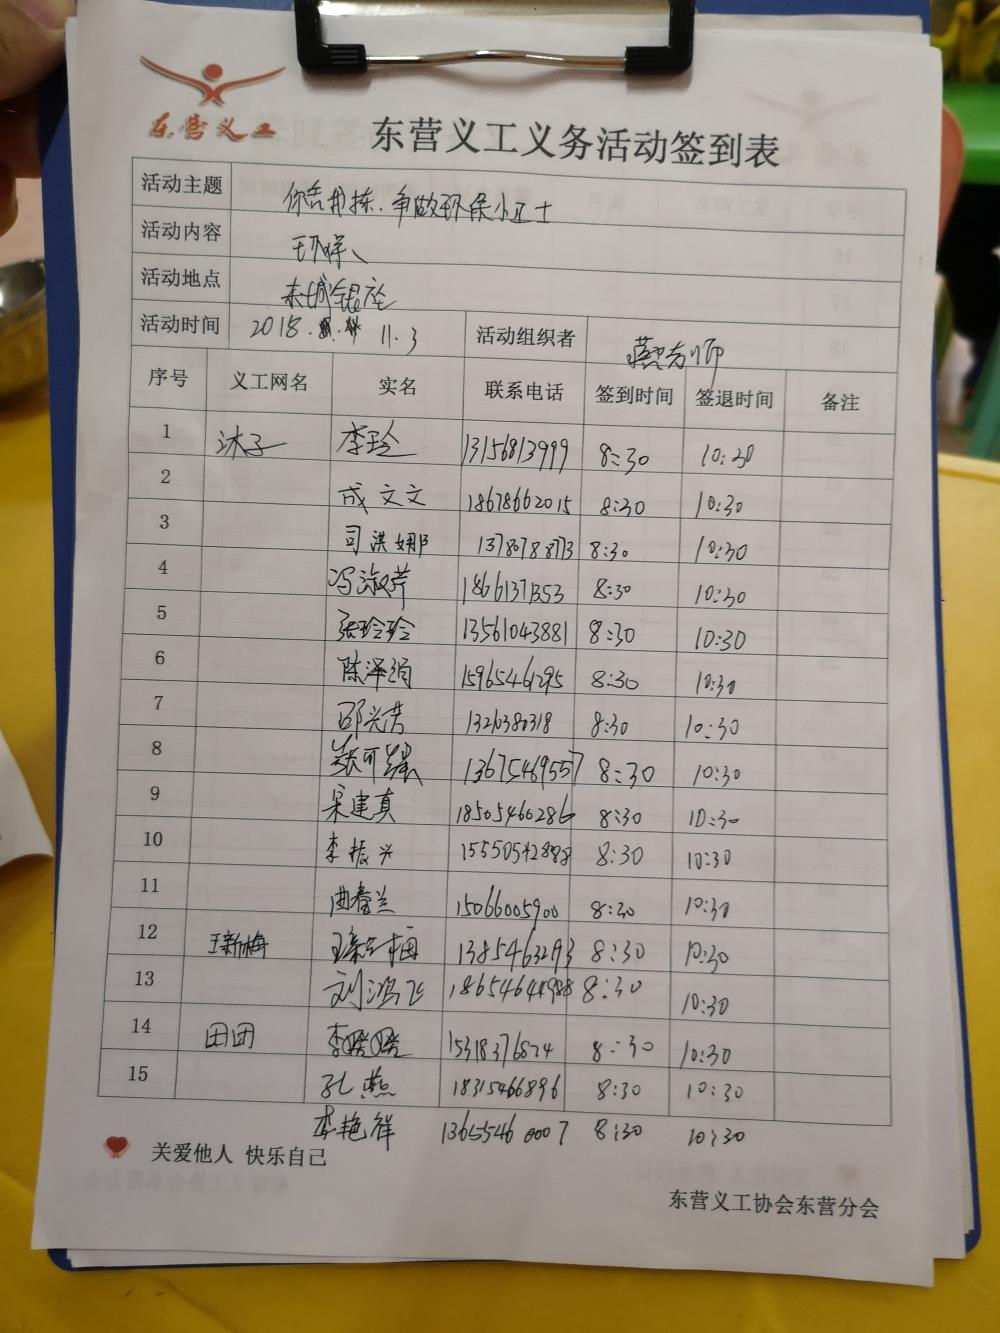 东营义工
东营义工义务活动签到表
活动主题 你丢我捡.争做环保小卫士
活动内容 环保
活动地点 东城银座
活动时间 2018. 11.3 活动组织者 老师
序号 义工网名 实名 联系电话 签到时间 签退时间 备注
1 沐子 李玲 13156813999 8:30 10:30
2 成文文 18678662015 8:30 10:30
3 司洪娜 13780788773 8:30 10:30
4 冯淑芹 18661371353 8:30 10:30
5 张玲玲 13561043881 8:30 10:30
6 陈泽 15965461295 8:30 10:30
7 邵兴 1326380318 8:30 10:30
8 可 13675469557 8:30 10:30
9 宋建真 18505460286 8:30 10:30
10 李振兴 15550542888 8:30 10:30
11 曲春兰 15066005900 8:30 10:30
12 王新梅 梅 1385463293 8:30 10:30
13 刘鸿飞 18654644988 8:30 10:30
14 田团 李 15318376824 8:30 10:30
15 孔燕 18315466896 8:30 10:30
李艳祥 13655460007 8:30 10:30
关爱他人 快乐自己
东营义工协会东营分会